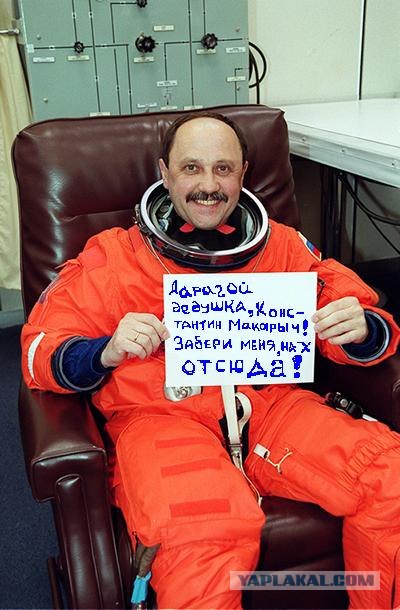 Дарагой
дедушка, Конс-
тантин Макарыч!
Забери меня, нах
отсюда!
YAPLAKAL.COM